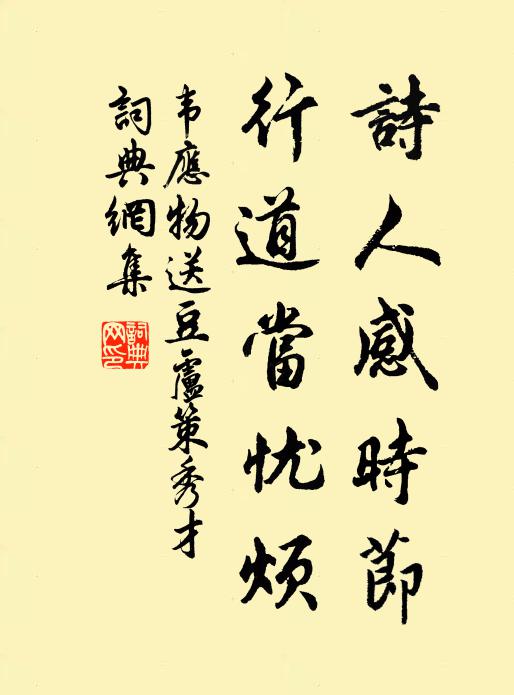 詩人感時節
行道當忧煩
韦應物送豆盧策秀才
詞典網集
詞典網印